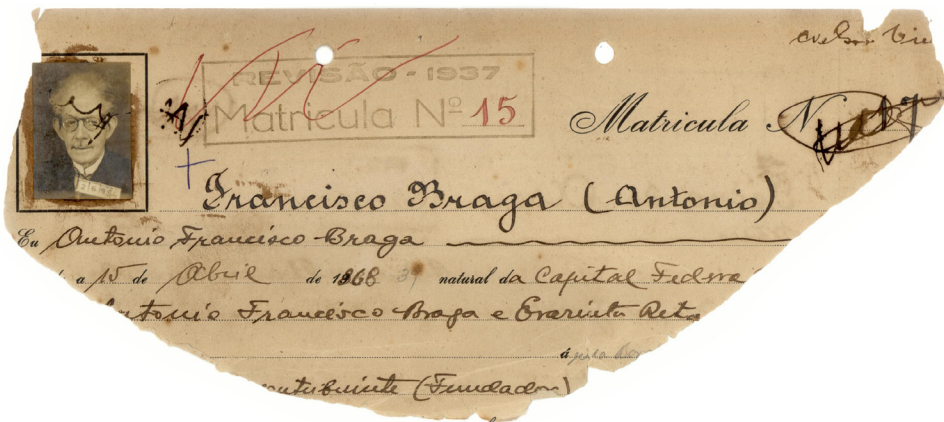 REVISÃO - 1937
Matricula Nº 15
Matricula N
Francisco Braga (Antonio)
Eu Antonio Francisco Braga
a 15 de Abril de 1868 natural da Capital Federa
Antonio Francisco Braga e
á
(Fundador)